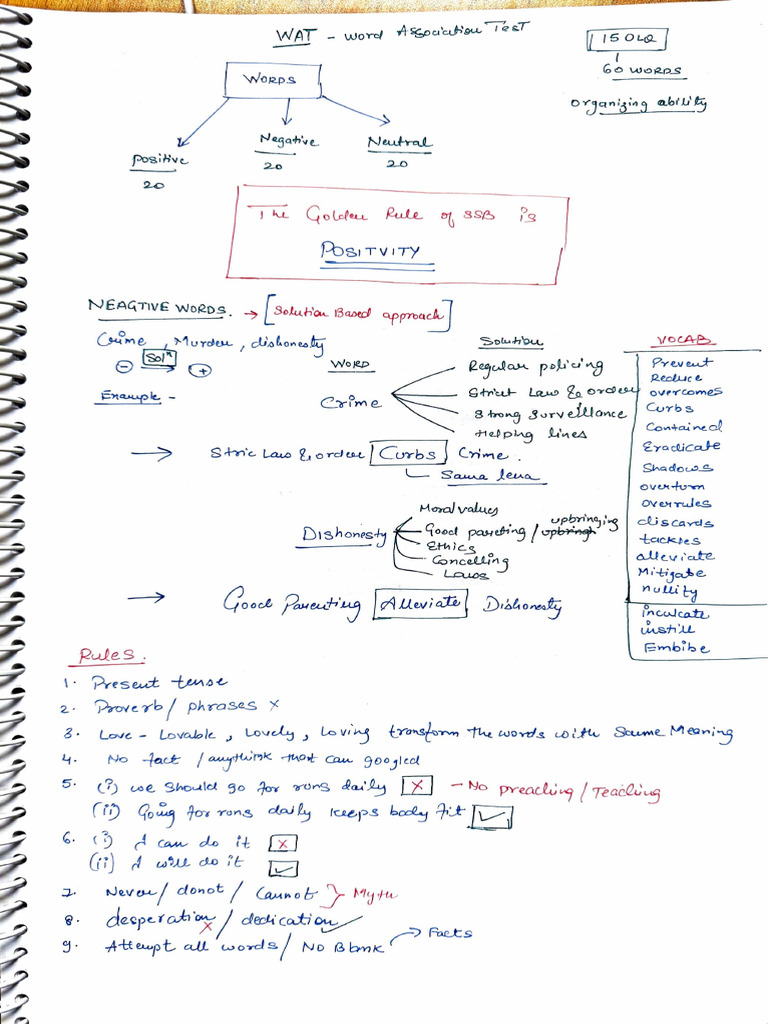 WAT - Word Association Test
15 OLQ
60 WORDS
Organizing ability
WORDS
Positive
20
Negative
20
Neutral
20
The Golden Rule of SSB is
POSITVITY
NEAGTIVE WORDS. → [Solution Based approach]
Crime, Murder, dishonesty
- Solⁿ +
Example -
WORD
Crime
Solution
Regular policing
Strict Law & order
Strong Surveillance
Helping lines
→ Stric Law & order Curbs Crime.
Sama lena
Dishonesty
Moral values
Good pareting / upbringing
Ethics
Concelling
Laws
→ Good Parenting Alleviate Dishonesty
VOCAB
Prevent
Reduce
overcomes
Curbs
Contained
Eradicate
Shadows
overturn
overrules
discards
tackles
alleviate
Mitigate
nullity
inculcate
instill
Embibe
RULES.
1. Present tense
2. Proverb / phrases x
3. Love - Lovable, Lovely, Loving transform the words with Saume Meaning
4. No fact / anythink that can googled
5. (i) we should go for runs daily x - No preaching / Teaching
(ii) Going for runs daily keeps body fit ✓
6. (i) I can do it x
(ii) I will do it ✓
7. Never / donot / Cannot } Myth
8. desperation x / dedication ✓
9. Attempt all words / No Blank → Facts